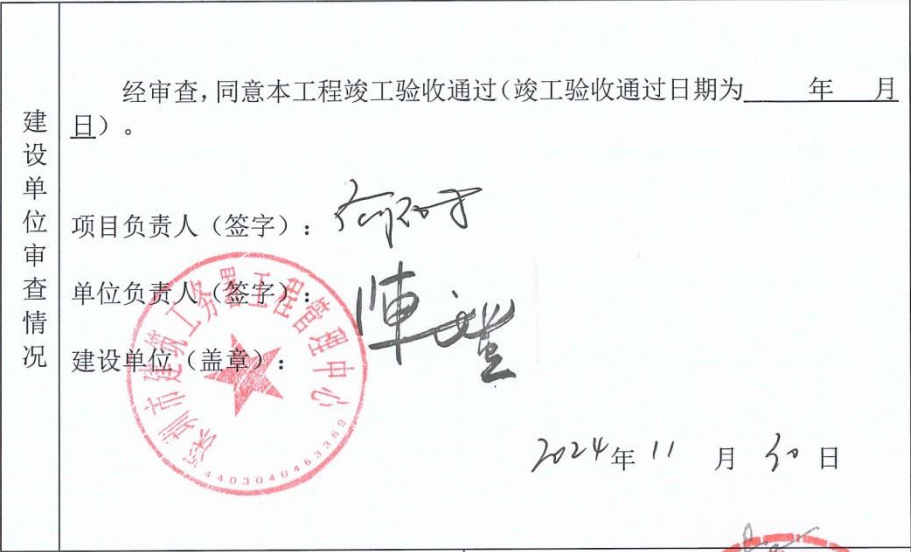 建设单位审查情况
经审查，同意本工程竣工验收通过（竣工验收通过日期为 年 月
日）。
项目负责人（签字）：
单位负责人（签字）：
陳
建设单位（盖章）：
深圳市建筑工务署工程管理中心
2024年 11 月 30 日